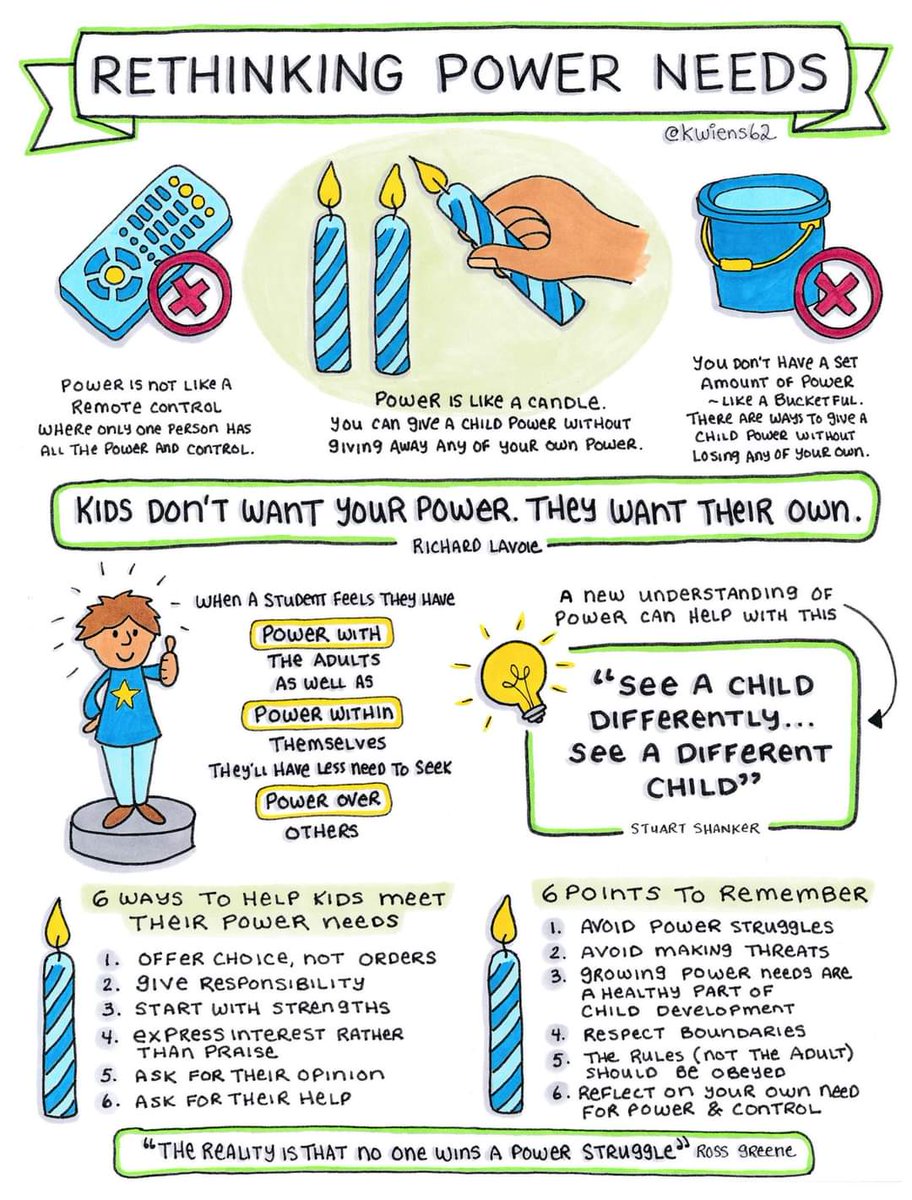 RETHINKING POWER NEEDS
@kwiens62
POWER IS NOT LIKE A
REMOTE CONTROL
WHERE ONLY ONE PERSON HAS
ALL THE POWER AND CONTROL.
POWER IS LIKE A CANDLE.
YOU CAN GIVE A CHILD POWER WITHOUT
GIVING AWAY ANY OF YOUR OWN POWER.
YOU DON'T HAVE A SET
AMOUNT OF POWER
~LIKE A BUCKETFUL.
THERE ARE WAYS TO GIVE A
CHILD POWER WITHOUT
LOSING ANY OF YOUR OWN.
KIDS DON'T WANT YOUR POWER. THEY WANT THEIR OWN.
RICHARD LAVOIE
WHEN A STUDENT FEELS THEY HAVE
POWER WITH
THE ADULTS
AS WELL AS
POWER WITHIN
THEMSELVES
THEY'LL HAVE LESS NEED TO SEEK
POWER OVER
OTHERS
A NEW UNDERSTANDING OF
POWER CAN HELP WITH THIS
"SEE A CHILD
DIFFERENTLY...
SEE A DIFFERENT
CHILD"
STUART SHANKER
6 WAYS TO HELP KIDS MEET
THEIR POWER NEEDS
1. OFFER CHOICE, NOT ORDERS
2. GIVE RESPONSIBILITY
3. START WITH STRENGTHS
4. EXPRESS INTEREST RATHER
THAN PRAISE
5. ASK FOR THEIR OPINION
6. ASK FOR THEIR HELP
6 POINTS TO REMEMBER
1. AVOID POWER STRUGGLES
2. AVOID MAKING THREATS
3. GROWING POWER NEEDS ARE
A HEALTHY PART OF
CHILD DEVELOPMENT
4. RESPECT BOUNDARIES
5. THE RULES (NOT THE ADULT)
SHOULD BE OBEYED
6. REFLECT ON YOUR OWN NEED
FOR POWER & CONTROL
"THE REALITY IS THAT NO ONE WINS A POWER STRUGGLE" ROSS GREENE